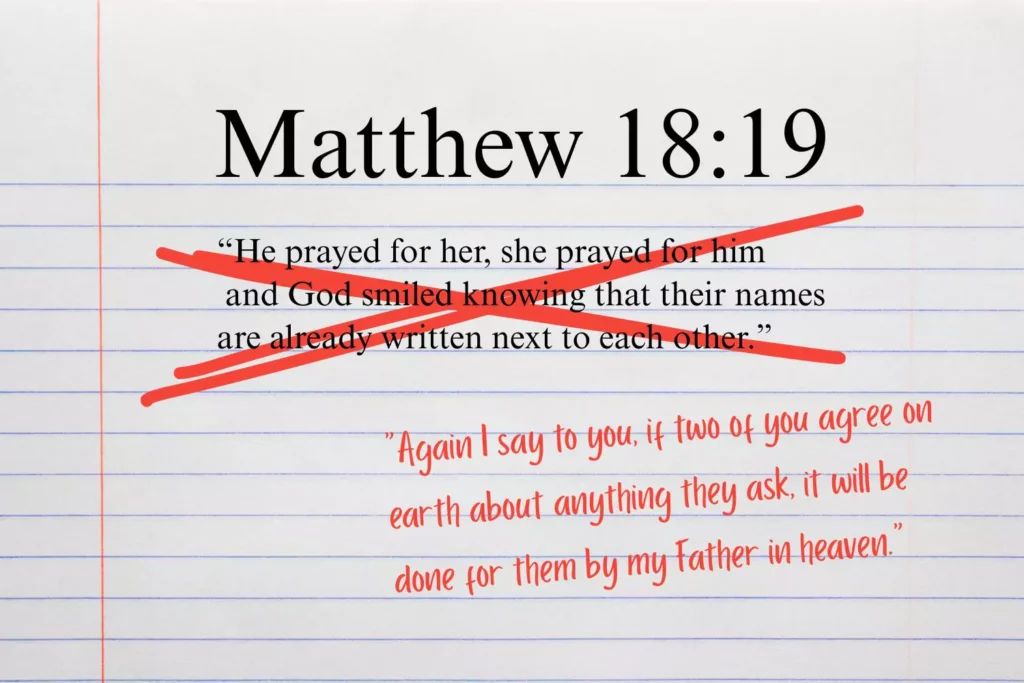 Matthew 18:19
“He prayed for her, she prayed for him
and God smiled knowing that their names
are already written next to each other.”
"Again I say to you, if two of you agree on
earth about anything they ask, it will be
done for them by my Father in heaven."